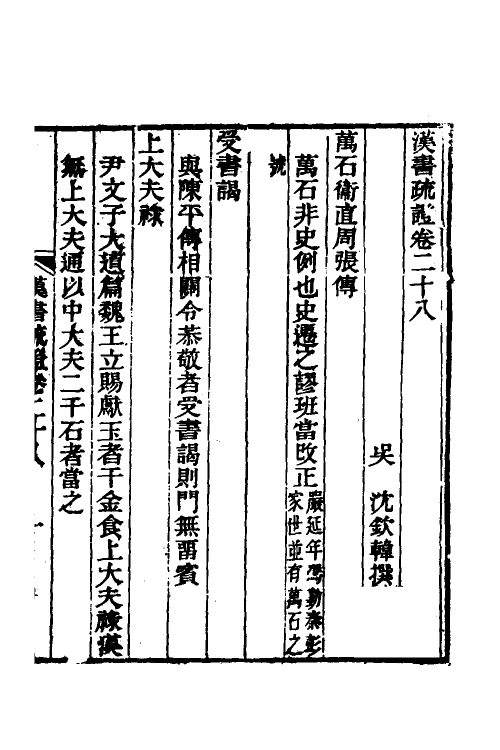 漢書疏證卷二十八
吳 沈欽韓撰
萬石衛直周張傳
萬石非史例也史遷之謬班當改正嚴延年馮勤秦彭
家世並有萬石之
號
受書謁
與陳平傳相關令恭敬者受書謁則門無留賓
上大夫祿
尹文子大道篇魏王立賜獻玉者千金食上大夫祿漢
無上大夫通以中大夫二千石者當之
漢書疏證卷二十八 一